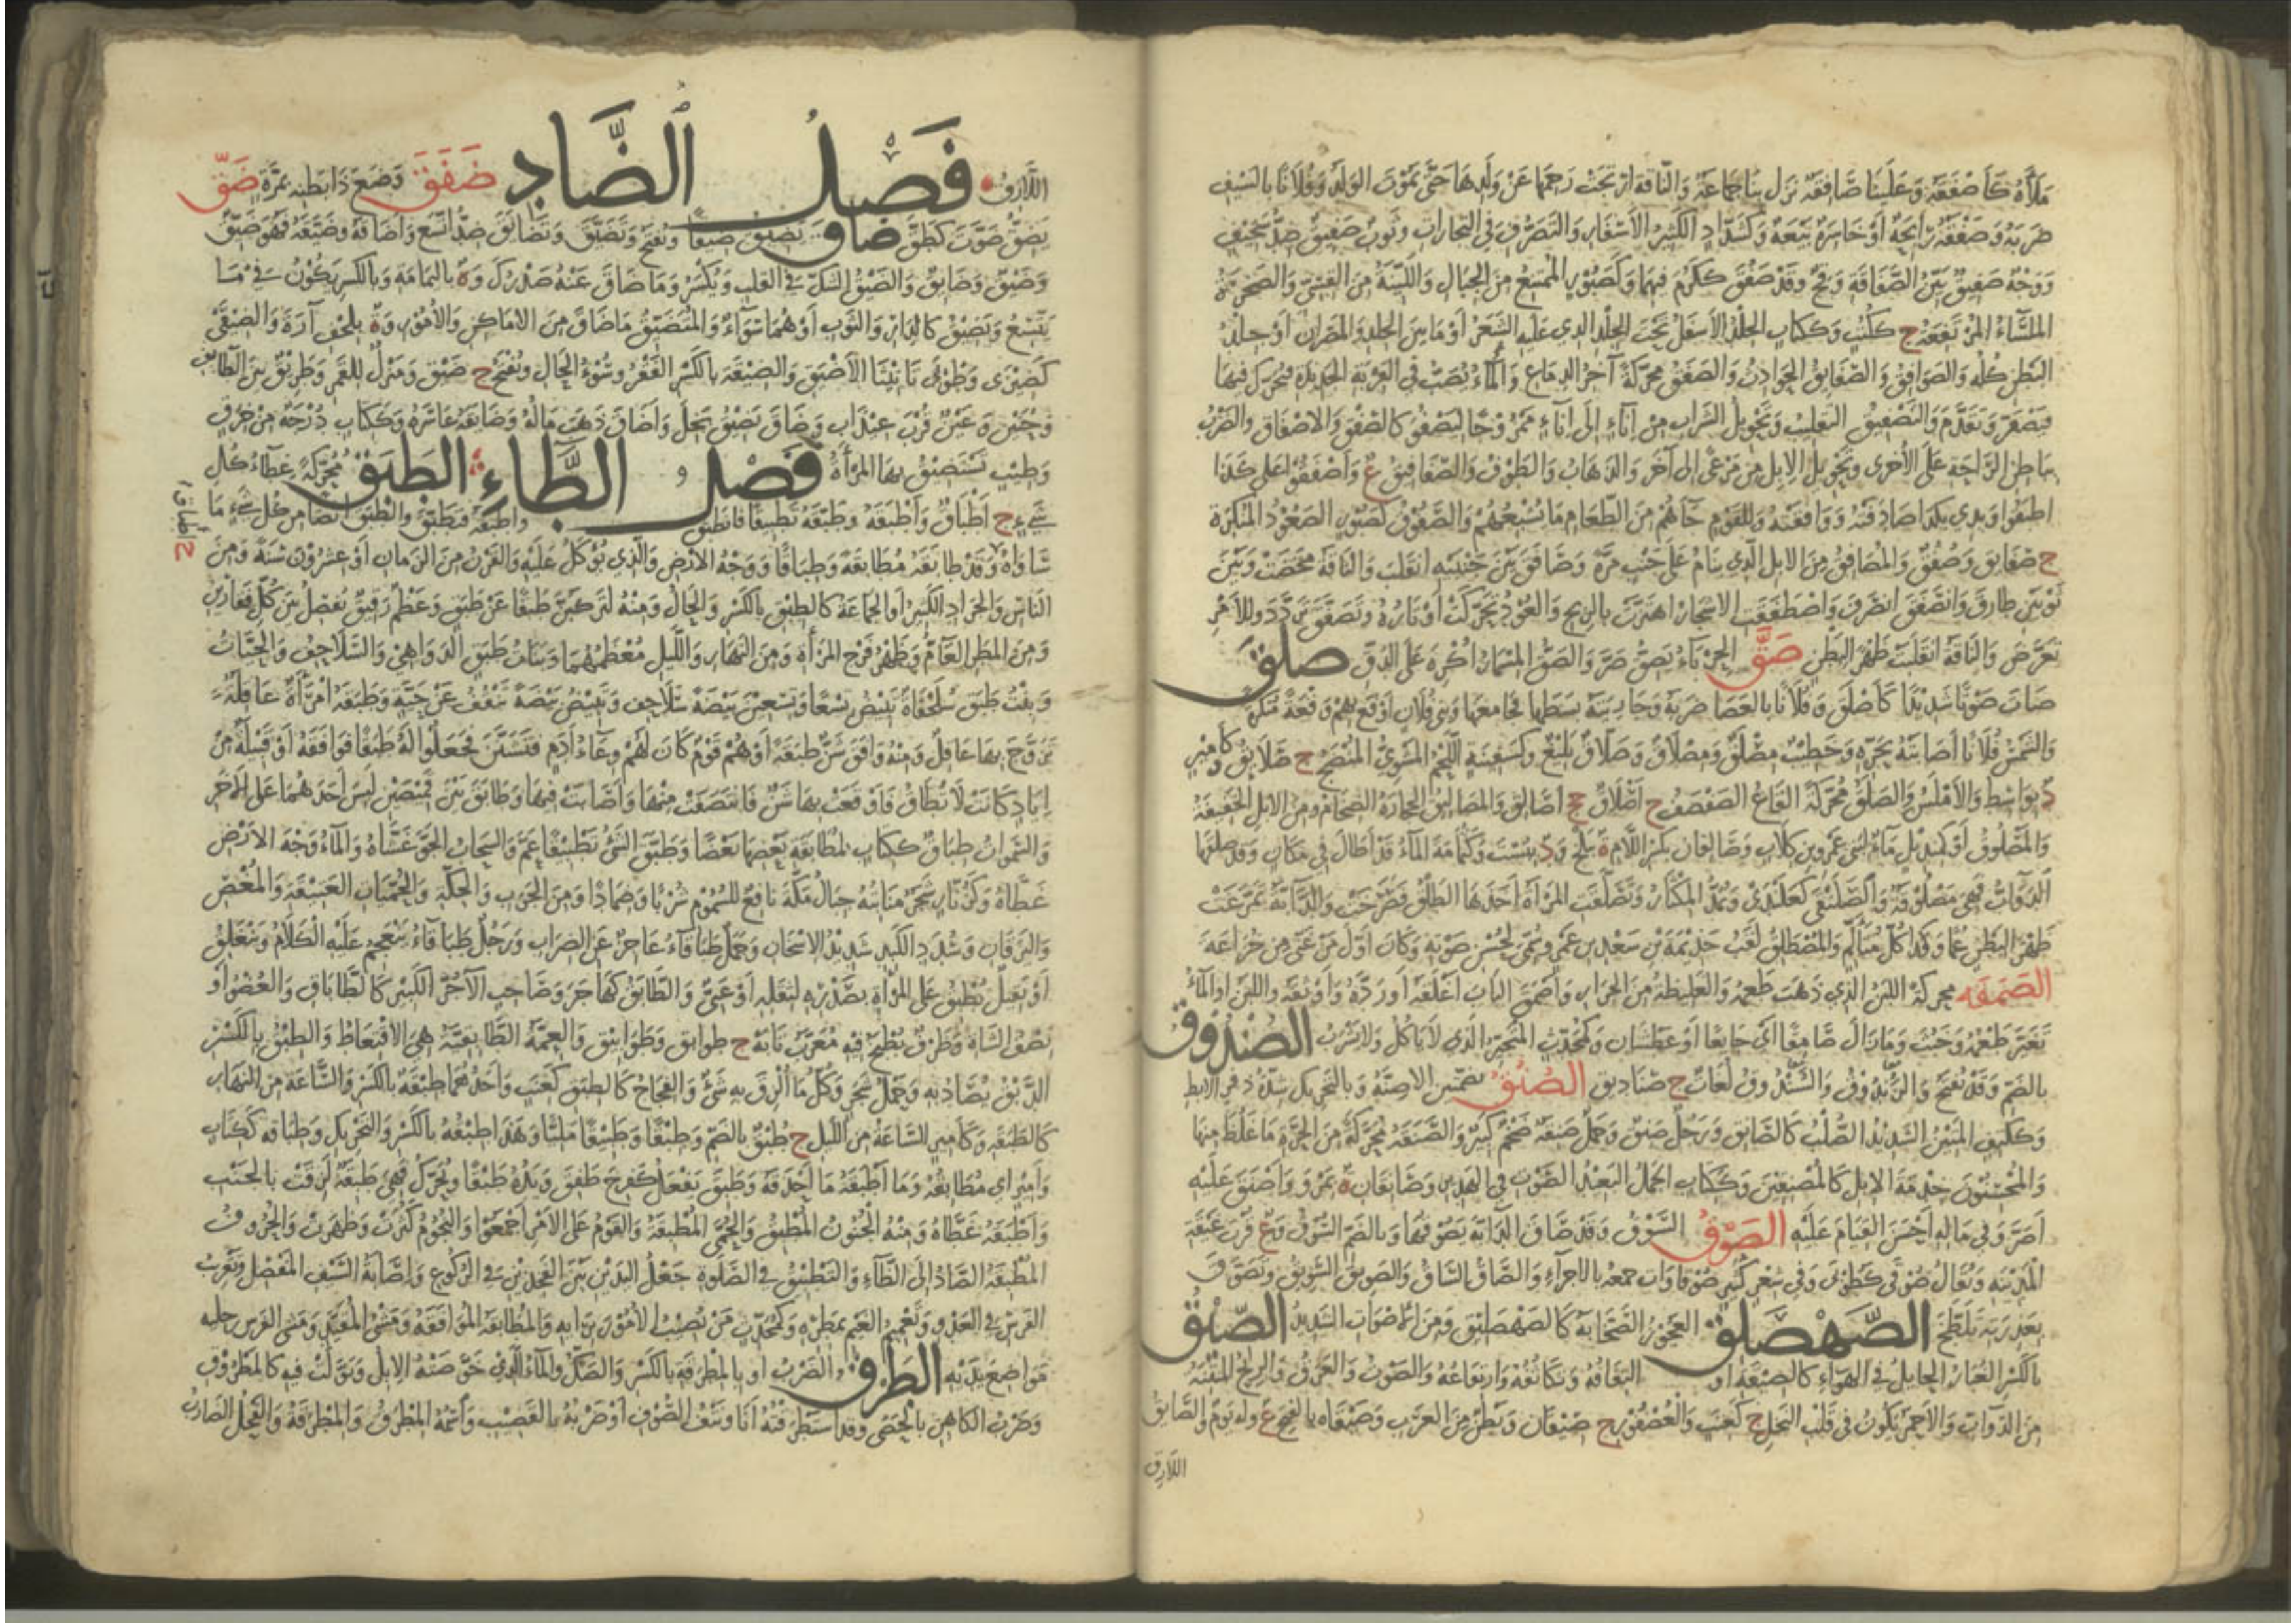 ملأه كأصفقه وعلينا صافقة نزل بنا جماعة والناقة ارتجت رحمها عن ولدها حتى يموت الولد وفلانا بالسيف
ضربه وصفقة رابحة أو خاسرة بيعة وكشداد الكثير الأسفار والتصرف في التجارات وثوب صفيق ضد سخيف
ووجه صفيق بين الصفاقة وقح وقد صفق ككرم فيهما وكصبور الممتنع من الجبال واللينة من القسي والصخرة
الملساء المرتفعة ج ككتب وككتاب الجلد الأسفل تحت الجلد الذي عليه الشعر أو ما بين الجلد والمصران أو جلد
البطن كله والصوافق والصفائق الحوادث والصفق محركة آخر الدماغ والماء يصب في القربة الجديدة فيحرك فيها
فيصفر وتقدم والتصفيق التقليب وتحويل الشراب من إناء إلى إناء ممزوجا ليصفو كالصفق والإصفاق والضرب
بباطن الراحة على الأخرى وتحويل الإبل من مرعى إلى آخر والذهاب والطوف والصفافيق ع وأصفقوا على كذا
أطبقوا ويدي بكذا صادفته ووافقته وللقوم جاءهم من الطعام ما يشبعهم والصفوق كصبور الصعود المنكرة
ج صفائق وصفق والمصافق من الإبل الذي ينام على جنب مرة وصافق بين جنبيه انقلب والناقة مخضت وبين
ثوبين طارق وانصفق انصرف واصطفقت الأشجار اهتزت بالريح والعود تحركت أوتاره وتصفق تردد وللأمر
تعرض والناقة انقلبت ظهرا لبطن صق الحرباء يصق صر والصق المسمار أكره على الدق صلق
صات صوتا شديدا كأصلق وفلانا بالعصا ضربه وجاريته بسطها فجامعها وبني فلان أوقع بهم وقعة منكرة
والشمس فلانا أصابته بحرها وخطيب مصلق ومصلاق وصلاق بليغ وكسفينة اللحم المشوي المنضج ج صلائق وكأمير
د بواسط والأملس والصلق محركة القاع الصفصف ج أصلاق جج أصاليق والمصاليق الحجارة الضخام ومن الإبل الخفيفة
طهرا لبطن غما وكذا كل متألم والمصطلق لقب جذيمة بن سعد بن عمرو سمي لحسن صوته وكان أول من غنى من خزاعة
الصمقة محركة اللبن الذي ذهب طعمه والغليظة من الحرار وأصمق الباب أغلقه أو رده وأوثقه واللبن أو الماء
تغير طعمه وخبث وما زال صامقا أي جائعا أو عطشان وكمحدث المتحير الذي لا يأكل ولا يشرب الصندوق
بالضم وقد يفتح والزندوق والسندوق لغات ج صناديق الصنق بضمتين الأصنة وبالتحريك شدة ذفر الإبط
وككتف المتين الشديد الصلب كالصانق ورجل صنق وجمل صنقة ضخم كبير والصنقة محركة من الحرة ما غلظ منها
والمحسنون خدمة الإبل كالمصنقين وككتاب الجمل البعيد الصوت في الهدير وصانقان ة بمرو وأصنق عليه
أصر وفي ماله أحسن القيام عليه الصوق السوق وقد صاق الدابة يصوقها وبالضم السوق وع قرب غيقة
بعذرته تلطخ الصهصلق العجوز الصخابة كالصهصليق ومن الأصوات الشديد الصيق
بالكسر الغبار الجائل في الهواء كالصيقة أو التفافه وتكاثفه وارتفاعه والصوت والعرق والريح المنتنة
من الدواب والأحمر يكون في قلب النخل ج كعنب والعصفور ج صيقان وبطن من العرب وصيقاه بالفتح ع وله يوم والصائق
اللازق
اللازق فصل الضاد ضفق وضع ذا بطنه بمرة ضق
يضق صوت كطق ضاق يضيق ضيقا ويفتح وتضيق وتضايق ضد اتسع وأضاقه وضيقه فهو ضيق
وضيق وضائق والضيق الشك في القلب ويكسر وما ضاق عنه صدرك وة باليمامة وبالكسر يكون في ما
يتسع ويضيق كالدار والثوب أو هما سواء والمتضيق ما ضاق من الأماكن والأمور وة بلحف آرة والضيقى
كضيزى وطوبى تأنيثا الأضيق والضيقة بالكسر الفقر وسوء الحال ويفتح ج ضيق ومنزل للقمر وطريق بين الطائف
وحنين وة عين قرب عيذاب وضاق يضيق بخل وأضاق ذهب ماله وضايقه عاسره وككتاب درجة من خرق
وطيب تستضيق بها المرأة فصل الطاء الطبق محركة غطاء كل
شيء ج أطباق وأطبقة وطبقه تطبيقا فانطبق وأطبقه فتطبق والطبق أيضا من كل شيء ما
ساواه وقد طابقه مطابقة وطباقا ووجه الأرض والذي يؤكل عليه والقرن من الزمان أو عشرون سنة ومن
الناس والجراد الكثير أو الجماعة كالطبق بالكسر والحال ومنه لتركبن طبقا عن طبق وعظم رقيق يفصل بين كل فقارين
ومن المطر العام وظهر فرج المرأة ومن النهار والليل معظمهما وبنات طبق الدواهي والسلاحف والحيات
وبنت طبق سلحفاة تبيض تسعا وتسعين بيضة سلاحف وتبيض بيضة تنقف عن حية وطبقة امرأة عاقلة
تزوج بها عاقل ومنه وافق شن طبقة أو هم قوم كان لهم وعاء أدم فتشنن فجعلوا له طبقا فوافقه أو قبيلة من
إياد كانت لا تطاق فأوقعت بها شن فانتصفت منها وأصابت فيها وطابق بين قميصين لبس أحدهما على الآخر
والسموات طباق ككتاب لمطابقة بعضها بعضا وطبق الشيء تطبيقا عم والسحاب الجو غشاه والماء وجه الأرض
غطاه وكزنار شجر منابته جبال مكة نافع للسموم شربا وضمادا ومن الجرب والحكة والحميات العتيقة والمغص
واليرقان وسدد الكبد شديد الإسخان وجمل طباقاء عاجز عن الضراب ورجل طباقاء ينعجم عليه الكلام وينغلق
أو ثقيل يطبق على المرأة بصدره لثقله أو عيي والطابق كهاجر وصاحب الآجر الكبير كالطاباق والعضو أو
نصف الشاة وظرف يطبخ فيه معرب تابه ج طوابق وطوابيق والعمة الطابقية هي الاقتعاط والطبق بالكسر
الدبق يصاد به وحمل شجر وكل ما ألزق به شيء والفجاج كالطبق كعنب واحدهما طبقة بالكسر والساعة من النهار
كالطبقة وكأمير الساعة من الليل ج طبق بالضم وطبقا وطبيقا مليا وهذا طبقه بالكسر والتحريك وطباقه ككتاب
وأمير أي مطابقه وما أطبقه ما أحذقه وطبق يفعل كفرح طفق ويده طبقا ويحرك فهي طبقة لزقت بالجنب
وأطبقه غطاه ومنه الجنون المطبق والحمى المطبقة والقوم على الأمر أجمعوا والنجوم كثرت وظهرت والحروف
المطبقة الصاد إلى الظاء والتطبيق في الصلوة جعل اليدين بين الفخذين في الركوع وإصابة السيف المفصل وتقريب
الفرس في العدو وتعميم الغيم بمطره وكمحدث من يصيب الأمور برأيه والمطابقة الموافقة ومشي المقيد ومشي الفرس رجليه
مواضع يديه الطرق الضرب أو بالمطرقة بالكسر والصك والماء الذي خوضته الإبل وبولت فيه كالمطروق
وضرب الكاهن بالحصى وقد استطرقته أنا ونتف الصوف أو ضربه بالقضيب واسمه المطرق والمطرقة والفحل الضارب